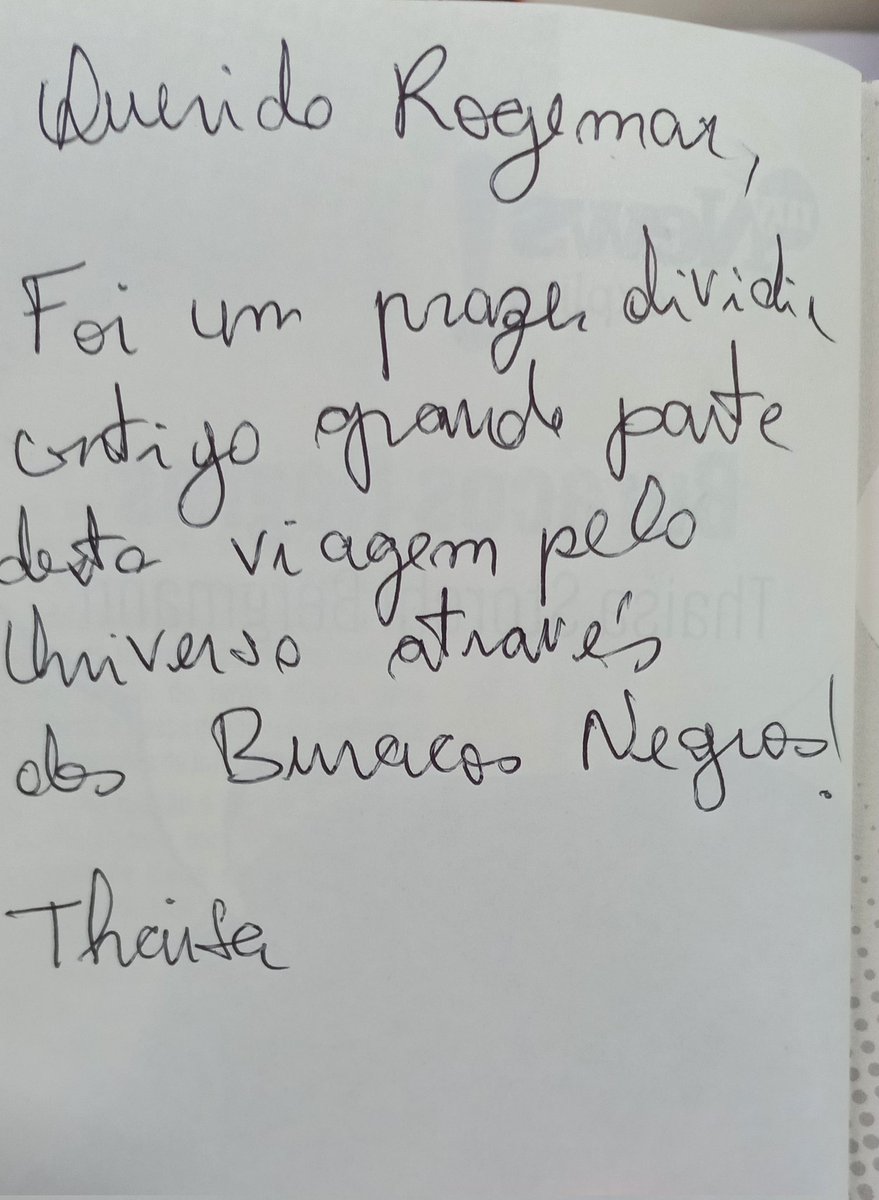 Querido Rogemar,
Foi um prazer dividir
contigo grande parte
desta viagem pelo
Universo através
dos Buracos Negros!
Thaisa